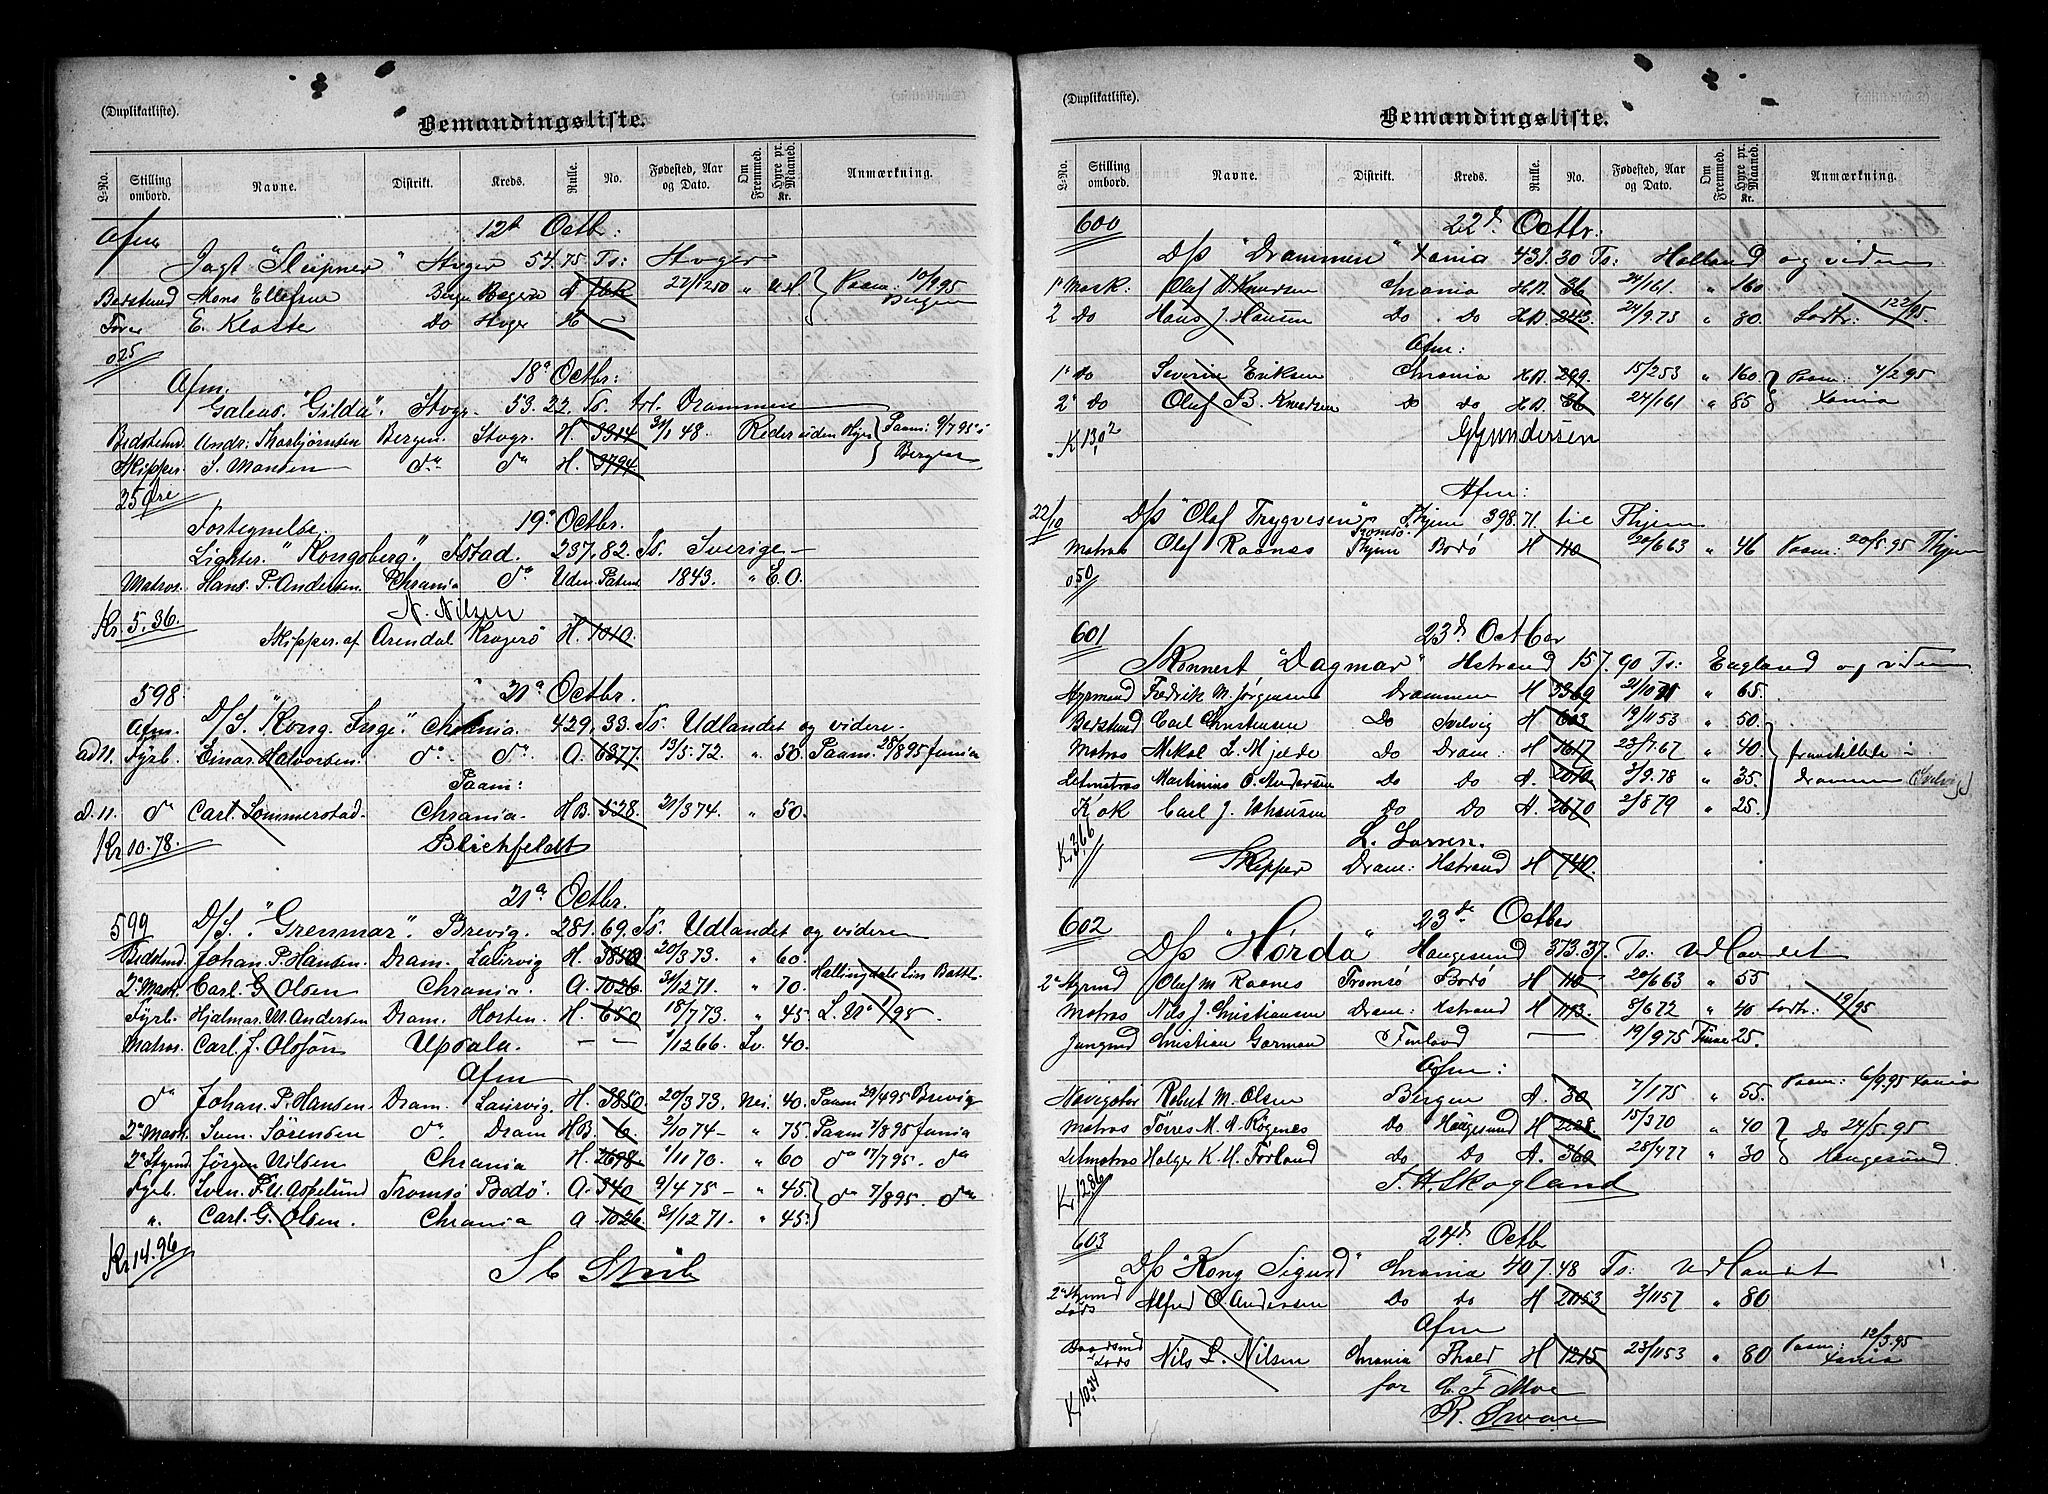 (Duplikatliste).
Bemandingsliste.
L-No. Stilling ombord. Navne. Distrikt. Kreds. Rulle. No. Fødested, Aar og Dato. Om Fremmed. Hyre pr. Maaned. Kr. Anmærkning.
Afm 12d Octbr:
Jagt "Sleipner" Stvger 54.75 Ts: Stvger
Bedstmd Mons Ellefsen Bergen 27/1250 " Paam: 10/9 95 Bergen
E. Kloster Do Stvger
025
Afm. 18de Octbr:
Galeas. "Gilda". Stvgr. 53.22. Ts. trl. Drammen
Bedstmd. Andr. Thorbjørnsen Bergen. Stvgr. H. 3314 31/1 48. Reder uden Hyre Paam: 9/7 95 i Bergen
Skipper. S. Monsen do do H. 3794
25 Øre
Fortegnelse. 19de Octbr.
Lighter. "Kongsberg". Fstad. 237.82. Ts. Sverige.
Matros. Hans. P. Andersen. Chrania do Uden Patent 1843. " E. O.
Kr. 5.36. N. Nilsen
Skipper. af Arendal Kragerø H. 1010.
598. 21de Octbr.
Afm. D/S. "Kong. Inge". Chrania. 429.33. Ts. Udlandet og videre.
ad 11. Fyrb. Einar. Halvorsen. do do A. 6377. 13/5.72. " 50. Paam. 28/8 95
Paam:
d. 11. do Carl. Sommerstad. Chrania. HB. 528. 21/3 74. " 50.
Kr 10.78. Blichfeldt
21de Octbr.
599 D/S. "Grenmar". Brevig. 281.69. Ts. Udlandet og videre
Bedstmd. Johan. P. Hansen. Dram. Laurvig H. 3850 20/3 73. " 60.
2n Mask. Carl. G. Olsen Chrania. A. 1026. 31/12 71. " 70.
Fyrb. Hjalmar. M. Andersen Dram. Horten. H. 650 18/7 73. " 45. L. No 1/95.
Matros. Carl. J. Olsson Upsala. — — 1/12 66. Sv. 40.
Afm
do Johan. P. Hansen. Dram. Laurvig. H. 3850. 20/3 73. Nei. 40. Paam 29/4 95 Brevig
2n Mask. Sven. Sørensen do. Dram HB — 6. 2/10 74 — " 75. Paam 7/8 95
2n Styrmd Jørgen Nilsen Chrania H. 2698 1/11 70. " 60 do 17/7 95. do
Fyrb. Sven. P. U. Aspelund Tromsø Bodø. A. 340 9/4 75 — " 45. do 7/8 95. do
". Carl. G. Olsen. Chrania A 1026. 31/12 71. " 45.
Kr 14.96
(Duplikatliste).
Bemandingsliste.
L-No. Stilling ombord. Navne. Distrikt. Kreds. Rulle. No. Fødested, Aar og Dato. Om Fremmed. Hyre pr. Maaned. Kr. Anmærkning.
600 22d. Octbr:
D/s "Drammen" Xania 431.30 Ts: Holland og videre
1n Mask: Olaf B. Knudsen Chrania HB. 36 24/1 61. " 160
2 Do Hans J. Hansen Do. Do HB. 243. 24/9.73 " 80.
Afm:
1n Do Severin Eriksen Chrania HB. 299. 15/2 53 " 160 Paam: 4/2 95
2n Do Oluf B. Knudsen Do Do HB. 36 24/1 61 " 85 Xania
K 13,02 G Gundersen
Afm:
22/10 D/s "Olaf Trygvesen" Thjem 398.71. til Thjem
Matros Olaf Raanes Tromsø Thjem Bodø H 110 20/6 63 " 46 Paam: 20/5.95 Thjem
0.50
601 23d. Octber
Skonnert "Dagmar" Hstrand 157.90 Ts: England og videre
Styrmand Fredrik M. Jørgensen Drammen H 3369 21/10 71 " 65.
Bedstmd Carl Christensen Do Svelvig H 603 19/11 53 " 50.
Matros Mikal L. Mjelde Do Dram: H 1617 23/7.67 " 40 fravistillede i
Letmatros Martinius C. Andersen Do Do A. 2010 3/9.78 " 35 Drammen (Svelvig)
Kok Carl J. Johansen Do Do A. 2670 2/8 79 " 25.
K. 3,66 L. Larsen.
Skipper Dram: Hstrand H 740.
602 23de Octber
D/s "Hørda" Haugesund 373.37. Ts: Udlandet
2n Styrmd Olaf M Raanes Tromsø Bodø H 110 20/6 63 " 55
Matros Nils J. Christiansen Dram: Hstrand H 1193. 8/6 72 " 40
Jungmd Christian Gorman Finland — 19/9 75 Finne 25.
Afm:
Navigatør Robert M. Olsen Bergen A. 30 7/1 75 " 55. Paam: 6/9.95 Xania
Matros Tørres M. A. Røgenes Do Haugesund H 2238. 15/3 70 " 40 Do 24/5.95
Letmatros Holge K. M. Førland Do Do A. 360 28/4 77 " 30 Haugesund.
Kr 12,86 T. H. Skogland
603 24d. Octb
D/s "Kong Sigurd" Chrania 407.48 Ts: Udlandet
2n Styrmd Lods Alfred O. Andersen Do Do H 2053 3/11 57 " 80
Afm
Baadsmd Lods Nils L. Nilsen Chrania H 1215 23/11 53 " 80 Paam: 12/3.95 Xania
K 10,34 for C. F. Moe